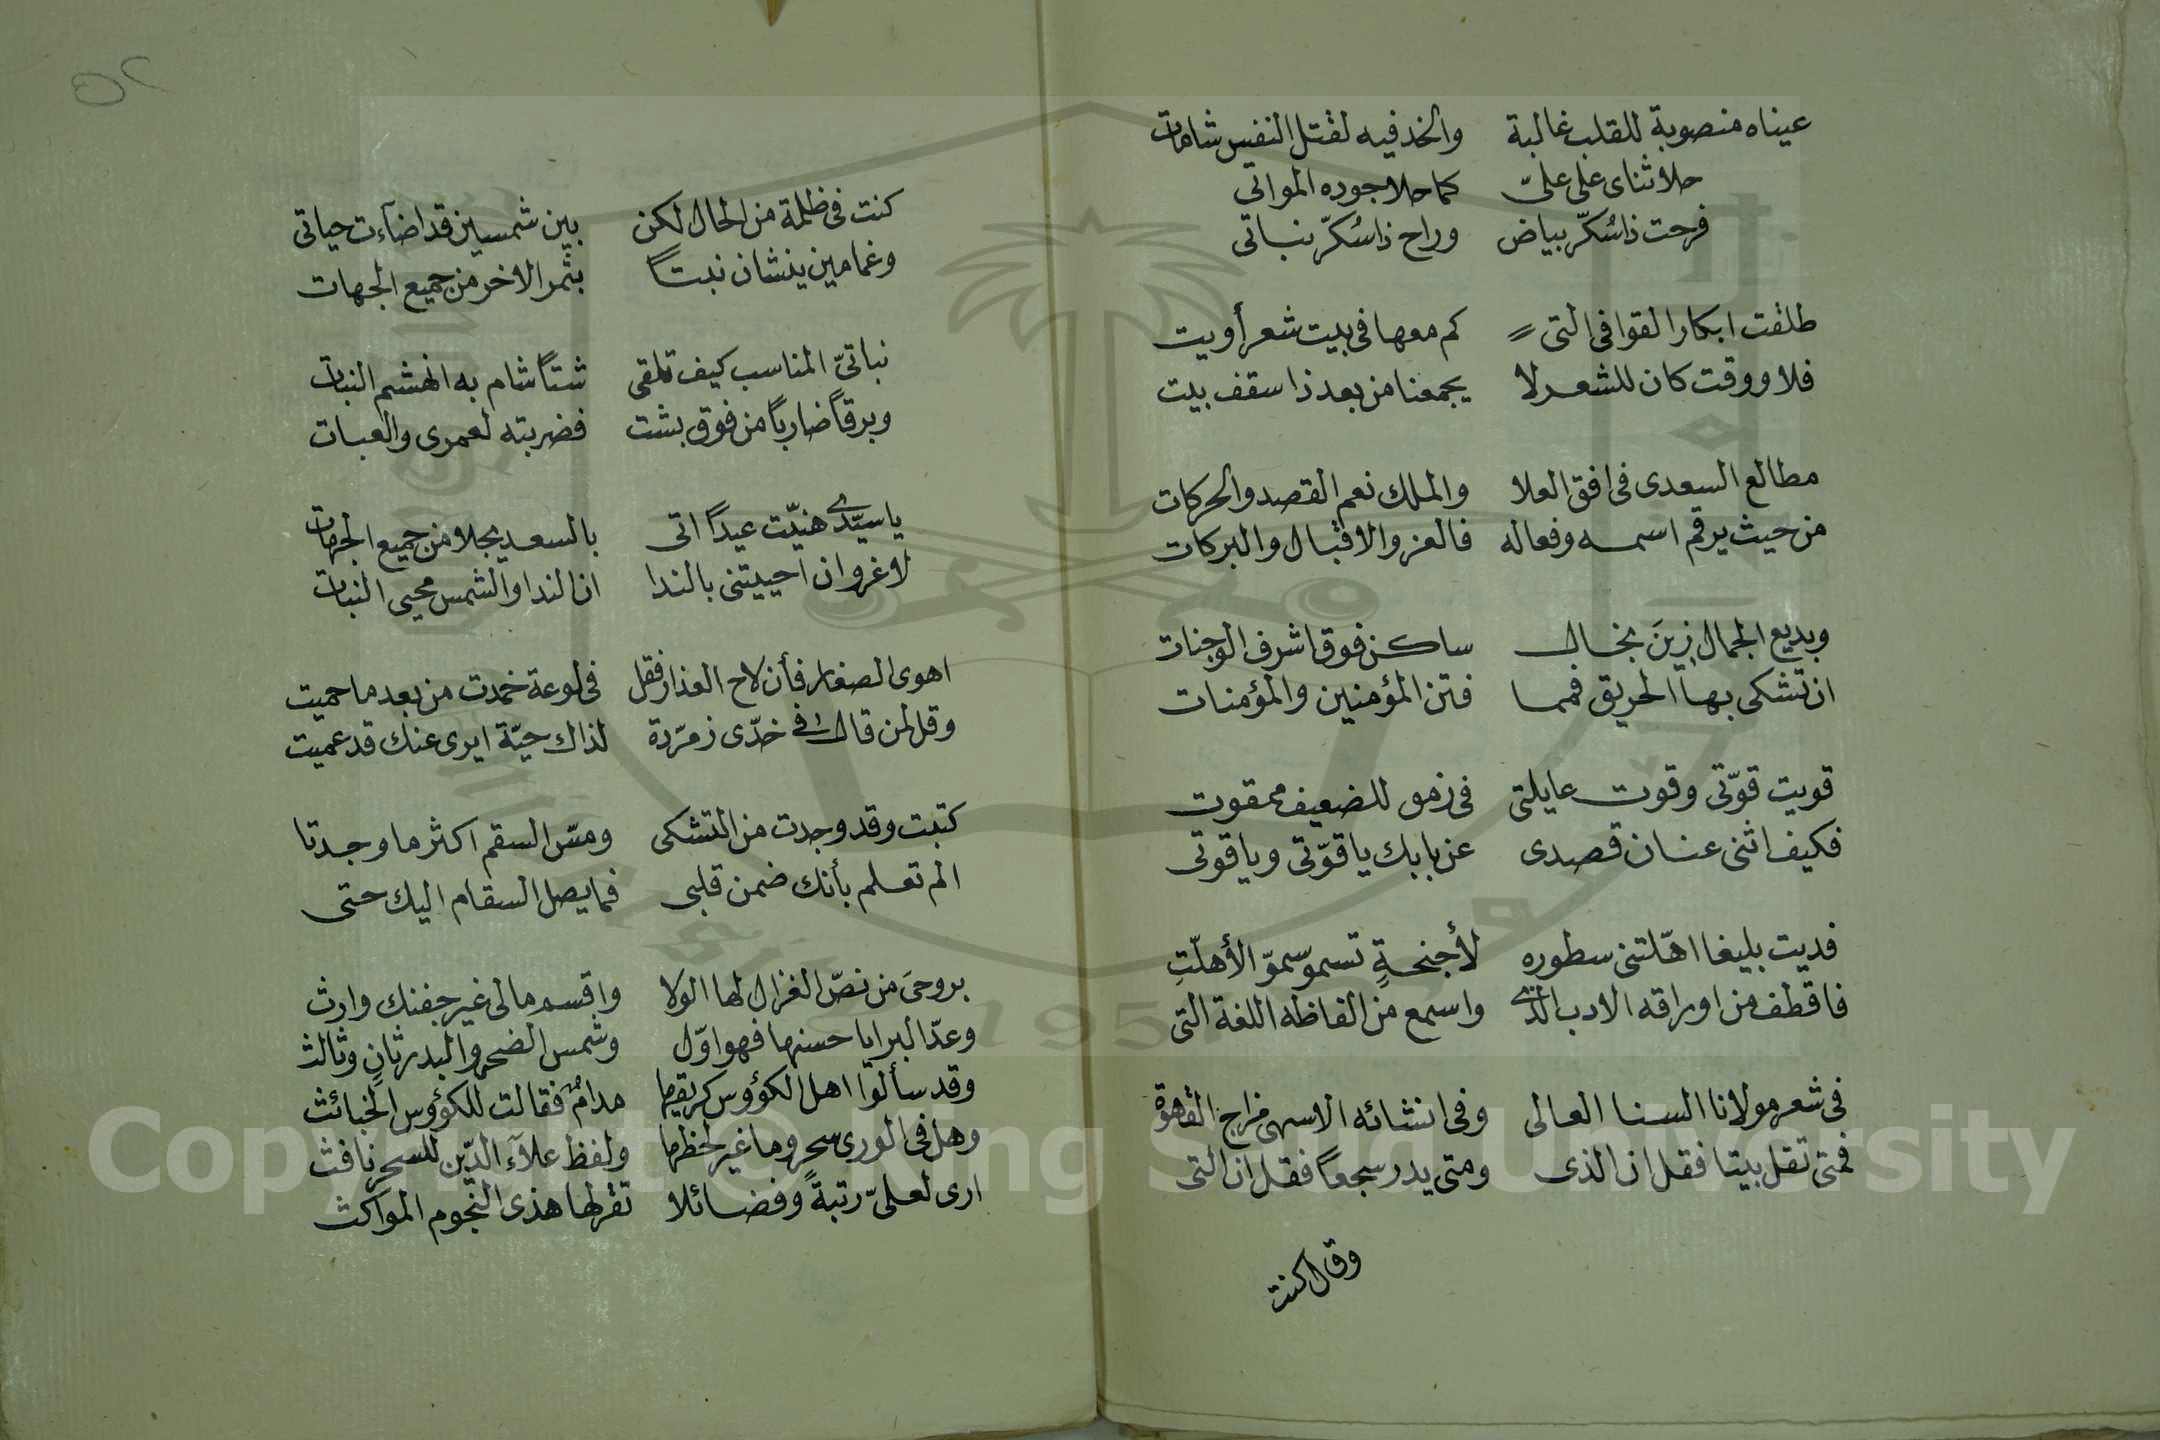 عيناه منصوبة للقلب غالبة والخد فيه لقتل النفس شامات
حلا ثناى على علىّ كما حلا جوده المواتى
فرحت ذا سُكّر بياض وراح ذا سُكّر نباتى
طلقت ابكار القوافى التى كم معها فى بيت شعر أويت
فلا ووقت كان للشعر لا يجمعنا من بعد ذا سقف بيت
مطالع السعدى فى افق العلا والملك نعم القصد والحركات
من حيث يرقم اسمه وفعاله فالعز والاقبال والبركات
وبديع الجمال زينَ بخال ساكن فوق اشرف الوجنات
ان تشكى بها الحريق فمما فتن المؤمنين والمؤمنات
قويت قوّتى وقوت عايلتى فى زمن للضعيف ممقوت
فكيف اثنى عنان قصدى عن بابك يا قوّتى ويا قوتى
فديت بليغا اهّلتنى سطوره لأجنحةٍ تسمو سموّ الأهلّتِ
فاقطف من اوراقه الادب الذى واسمع من الفاظه اللغة التى
فى شعر مولانا السنا العالى وفى انشائه الاسهى مزاج القهوة
فمتى تقل بيتا فقل ان الذى ومتى يدر سجعاً فقل ان التى
وقال كنت
٥٢
كنت فى ظلمة من الحال لكن بين شمسين قد اضآءت حياتى
وغمامين ينشان نبتاً بثمر الاخر من جميع الجهات
نباتىّ المناسب كيف تلقى شتاً شام به انهشم النبات
وبرقاً ضارباً من فوق بشت فضربته لعمرى والعبات
يا سيّدى هنيّت عيداً اتى بالسعد يجلا من جميع الجهات
لا غرو ان احييتنى بالندا ان الندا والشمس محيى النبات
اهوى الصغار فأن لاح العذار فقل فى لوعة خمدت من بعد ما حميت
وقل لمن قال لى فى خدّى زمرّدة لذاك حيّة ايرى عنك قد عميت
كتبت وقد وجدت من التشكى ومسّ السقم اكثر ما وجدتا
الم تعلم بأنك ضمن قلبى فما يصل السقام اليك حتى
بروحىَ من نصّ الغزال لها الولا واقسم مالى غير جفنك وارث
وعدّ البرايا حسنها فهو اوّل وشمس الضحى والبدر ثانٍ وثالث
وقد سألوا اهل الكؤوس كريقها مدامٌ فقالت للكؤوس الخبائث
وهل فى الورى سحر وما غير لحظها ولفظ علآء الدّين للسحر نافث
ارى لعلىّ رتبةً وفضائلا تقر لها هذى النّجوم المواكث
Copyright © King Saud University
1957